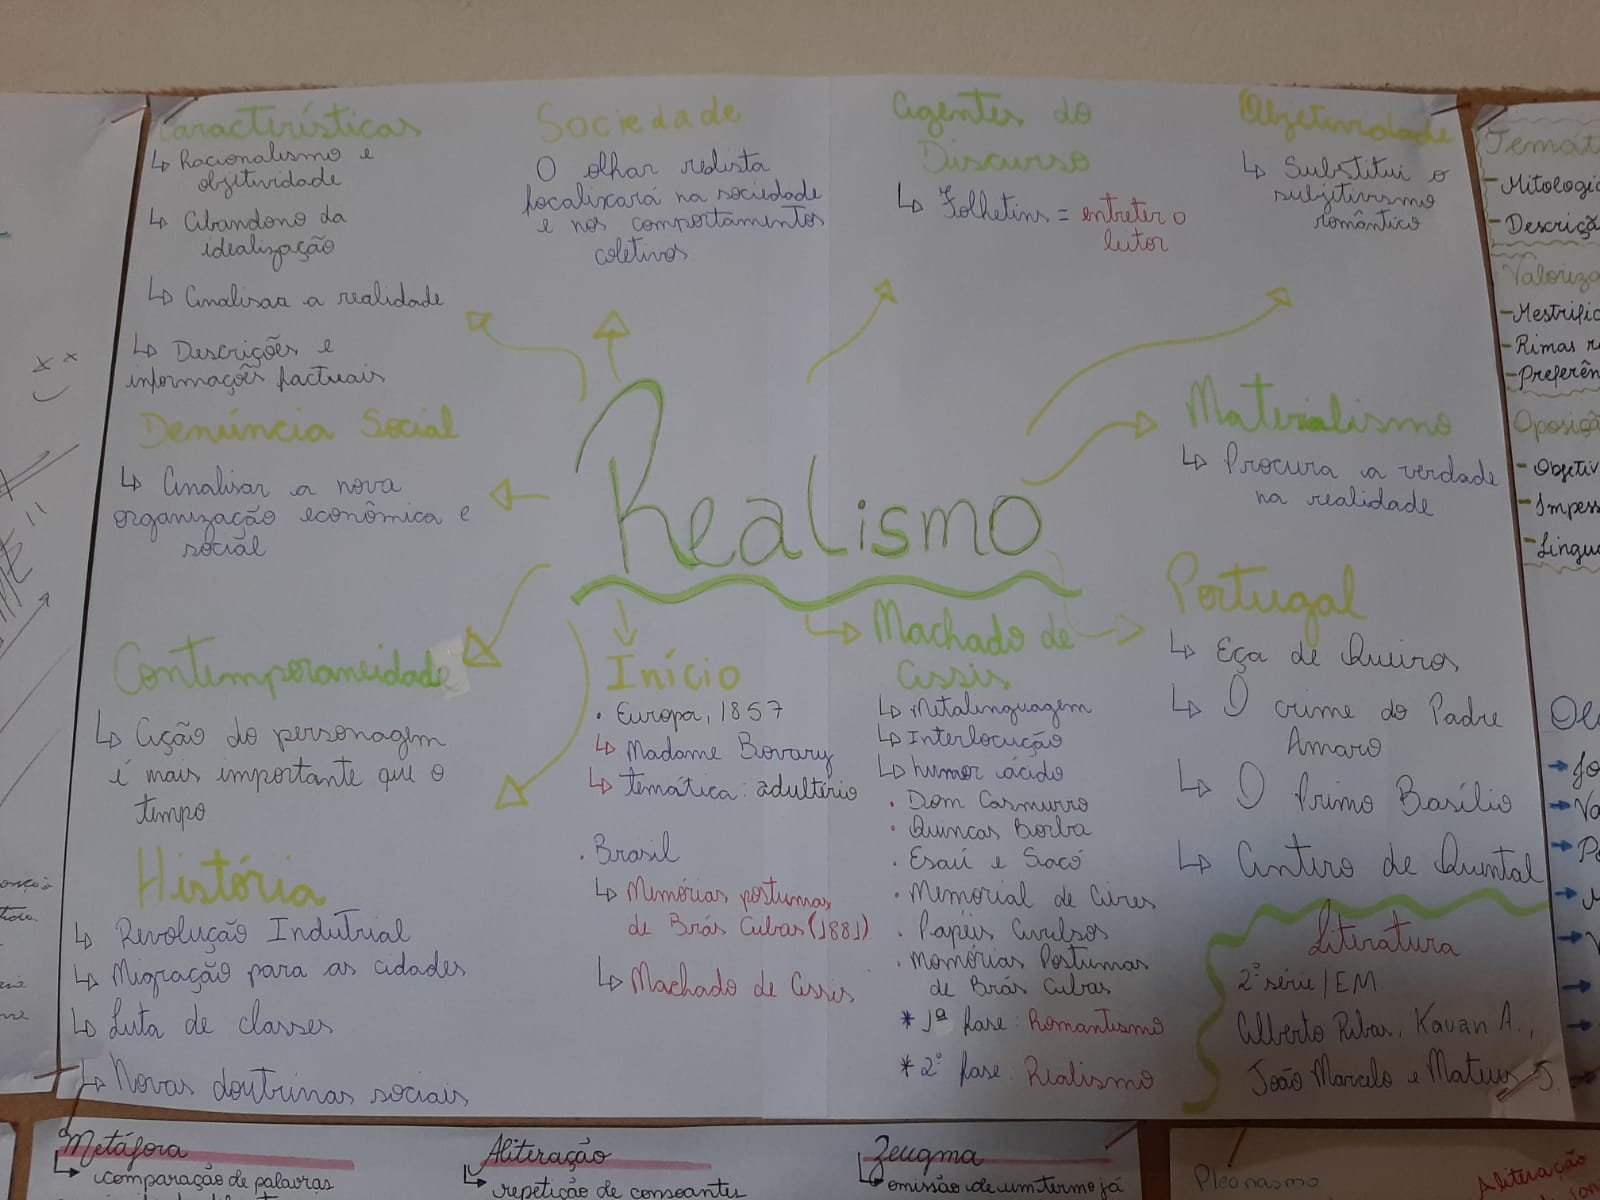 Características
↳ Racionalismo e
objetividade
↳ Abandono da
idealização
↳ Analisar a realidade
↳ Descrições e
informações factuais
Sociedade
O olhar realista
focalizará na sociedade
e nos comportamentos
coletivos
Agentes do
Discurso
↳ Folhetins = entreter o
leitor
Objetividade
↳ Substitui o
subjetivismo
romântico
Denúncia Social
↳ Analisar a nova
organização econômica e
social
Realismo
Materialismo
↳ Procura a verdade
na realidade
Contemporaneidade
↳ Ação do personagem
é mais importante que o
tempo
História
↳ Revolução Indutrial
↳ Migração para as cidades
↳ Luta de classes
↳ Novas doutrinas sociais
Início
• Europa, 1857
↳ Madame Bovary
↳ temática: adultério
• Brasil
↳ Memórias postumas
de Brás Cubas (1881)
↳ Machado de Assis
Machado de
Assis
↳ Metalinguagem
↳ Interlocução
↳ humor ácido
• Dom Casmurro
• Quincas Borba
• Esaú e Jacó
• Memorial de Aires
• Papéis Avulsos
• Momórias Postumas
de Brás Cubas
* 1ª fase: Romantismo
* 2ª fase: Realismo
Portugal
↳ Eça de Queiros
↳ O crime do Padre
Amaro
↳ O Primo Basílio
↳ Antero de Quental
Literatura
2ª série/EM
Alberto Ribas, Kauan A.,
João Marcelo e Mateus S.
Temát
- Mitologi
- Descriçã
Valoriza
- Mestrific
- Rimas r
- Preferên
Oposiçã
- Objetiv
- Impess
- Lingu
Metáfora
↳ comparação de palavras
Aliteração
↳ repetição de consoantes
Zeugma
↳ omissão de um termo já
Pleonasmo
Aliteração